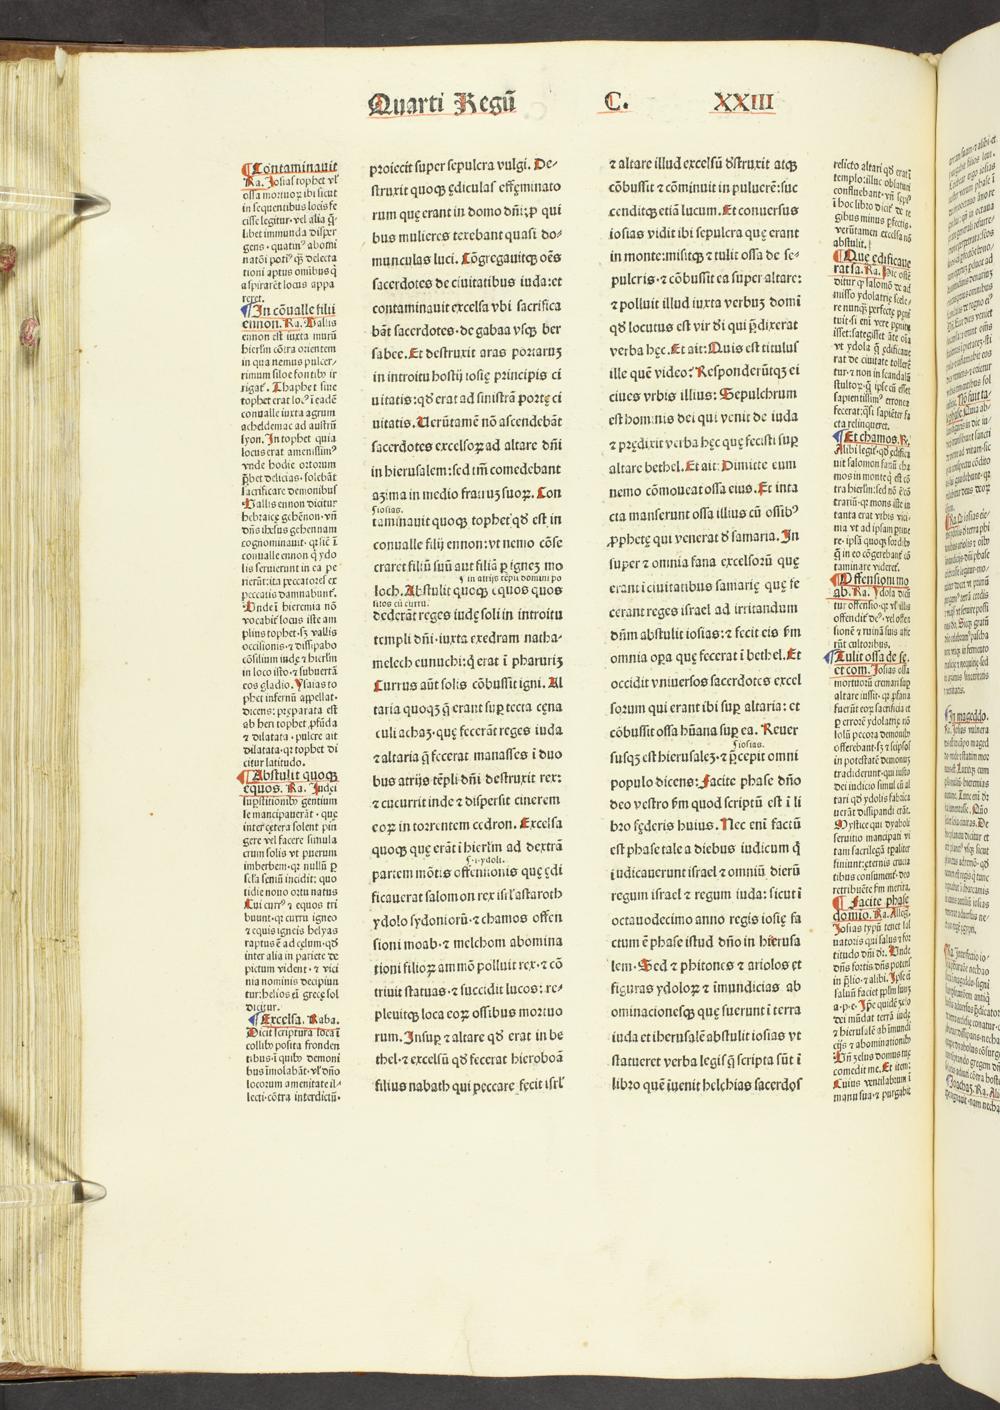 Quarti Regū C. XXIII
¶Contaminauit
Ra. Iosias tophet vl'
ossa mortuoꝝ ibi sicut
in sequentibus locis fe
cisse legitur. vel alia q̄-
libet immunda disper
gens. quatinꝰ abomi
natōi potiꝰ ꝙ delecta
tioni aptus omnibus q̄
aspirarēt locus appa
reret.
¶In cōualle filii
ennon. Ra. Vallis
ennon est iuxta murū
hierl'm cōtra orientem
in qua nemus pulcer-
rimum siloe fontibꝰ ir
rigat̄. Thaphet siue
tophet erat locꝰ ī eadē
conualle iuxta agrum
acheldemac ad austrū
syon. In tophet quia
locus erat amenissimꝰ
vnde hodie ortorum
p̄bet delicias. solebāt
sacrificare demonibus
Vallis ennon dicitur
hebraice gehēnon. vn̄
dn̄s ih̄esus gehennam
cognominauit. qr sic ī
conualle ennon q̄ ydo
lis seruierunt in ea pe
rierūt: ita peccatores ex
peccatis damnabunt̄.
Vnde ī hieremia nō
vocabit̄ locus iste am
plius tophet. sꝫ vallis
occisionis. ⁊ dissipabo
cōsilium iudę ⁊ hierl'm
in loco isto. ⁊ subuertā
eos gladio. Ysaias to
phet infernū appellat.
dicens: preparata est
ab heri tophet. ꝓfūda
⁊ dilatata. pulcre ait
dilatata. qr tophet di
citur latitudo.
¶Abstulit quoqꝫ
equos. Ra. Iudei
supstitionibꝰ gentium
se mancipauerāt. que
inter cętera solent pin
gere vel facere simula
crum solis vt puerum
imberbem. qr nullū p̄
scl'a seniū incidit; quo
tidie nouo ortu natus
Cui currꝰ ⁊ equos tri
buunt. qr curru igneo
⁊ equis igneis helyas
raptus ē ad cęlum. qd̄
inter alia in pariete de
pictum vident. ⁊ vici
nia nominis decipiun
tur: helios em̄ gręce sol
dicitur.
¶Excelsa. Raba.
Dicit scriptura loca ī
collibꝰ posita fronden
tibus. ī quibꝰ demoni
bus īmolabāt. vl' dn̄o
locorum amenitate il-
lecti. cōtra interdictū.
proiecit super sepulcra vulgi. De-
struxit quoqꝫ ędiculas effęminato
rum quę erant in domo dn̄i: ꝓ qui
bus mulieres texebant quasi do-
munculas luci. Cōgregauitqꝫ oēs
sacerdotes de ciuitatibus iuda: et
contaminauit excelsa vbi sacrifica
bāt sacerdotes. de gabaa vsqꝫ ber
sabee. Et destruxit aras portarum
in introitu hostij iosię principis ci
uitatis: qd̄ erat ad sinistrā portę ci
uitatis. Verūtamē nō ascendebāt
sacerdotes excelsoꝝ ad altare dn̄i
in hierusalem: sed tm̄ comedebant
azima in medio fratruꝫ suoꝝ. Con
s. iosias.
taminauit quoqꝫ tophet: qd̄ est in
conualle filij ennon: vt nemo cōse
craret filiū suū aut filiā ꝑ ignem mo
s. in atrijs tēpli domini po
loch. Abstulit quoqꝫ equos quos
sitos cū curru.
dederāt reges iudę soli in introitu
templi dn̄i. iuxta exedram natha-
melech eunuchi: q̄ erat ī pharurim
Currus aūt solis cōbussit igni. Al
taria quoqꝫ q̄ erant sup tecta cęna
culi achaz. quę fecerāt reges iuda
⁊ altaria q̄ fecerat manasses ī duo
bus atrijs tēpli dn̄i destruxit rex:
⁊ cucurrit inde ⁊ dispersit cinerem
eoꝝ in torrentem cedron. Excelsa
quoqꝫ quę erāt ī hierl'm ad dextrā
s. i. ydoli.
partem mōtis offensionis quę ędi
ficauerat salomon rex isrl' astaroth
ydolo sydoniorū. ⁊ chamos offen
sioni moab. ⁊ melchom abomina
tioni filioꝝ ammō polluit rex. ⁊ cō
triuit statuas. ⁊ succidit lucos: re-
pleuitqꝫ loca eoꝝ ossibus mortuo
rum. Insup ⁊ altare qd̄ erat in be
thel. ⁊ excelsū qd̄ fecerat hieroboā
filius nabath qui peccare fecit isrl'
⁊ altare illud excelsū dstruxit atqꝫ
cōbussit ⁊ cōminuit in puluerē: suc
cenditqꝫ etiā lucum. Et conuersus
iosias vidit ibi sepulcra quę erant
in monte: misitqꝫ ⁊ tulit ossa de se-
pulcris. ⁊ cōbussit ea super altare:
⁊ polluit illud iuxta verbum domī
qd̄ locutus est vir dī qui p̄dixerat
verba hęc. Et ait: Quis est titulus
ille quē video? Responderūtqꝫ ei
ciues vrbis illius: Sepulchrum
est hominis dei qui venit de iuda
⁊ prędixit verba hęc quę fecisti sup
altare bethel. Et ait: Dimitte eum
nemo cōmoueat ossa eius. Et inta
cta manserunt ossa illius cū ossibꝰ
ꝓphetę qui venerat d̄ samaria. In
super ⁊ omnia fana excelsorū quę
erant ī ciuitatibus samarię quę fe
cerant reges israel ad irritandum
dn̄m abstulit iosias: ⁊ fecit eis fm̄
omnia oꝑa quę fecerat ī bethel. Et
occidit vniuersos sacerdotes excel
sorum qui erant ibi sup altaria: et
cōbussit ossa hūana sup ea. Reuer
s. iosias.
susqꝫ est hierusalem. ⁊ p̄cepit omni
populo dicens: Facite phase dn̄o
deo vestro fm̄ quod scriptū est ī li
bro fęderis huius. Nec enī factū
est phase tale a diebus iudicum q̄
iudicauerunt israel ⁊ omniū dierū
regum israel ⁊ regum iuda: sicut ī
octauodecimo anno regis iosię fa
ctum ē phase istud dn̄o in hierusa
lem. Sed ⁊ phitones ⁊ ariolos et
figuras ydoloꝝ ⁊ īmundicias ab
ominacionesqꝫ quę fuerunt ī terra
iuda et iherusalē abstulit iosias vt
statueret verba legis q̄ scripta sūt ī
libro quē īuenit helchias sacerdos
relicto altari qd̄ erat ī
templo: illuc oblaturi
confluebant. vn̄ sepiꝰ
ī hoc libro dicit̄ de re
gibus minus ꝑfectis.
verūtamen excelsa nō
abstulit.
¶Que edificaue
rat sa. Ra. Hic oste
ditur qꝫ salomō de ad
misso ydolatrię scele-
re nunqꝫ perfectę pęni
tuit. si enī vere pęnitu
isset: sategisset āte oīa
vt ydola q̄ edificaue
rat de ciuitate tollerē
tur. ⁊ non in scandalū
stultoꝝ. q̄ ipse cū esset
sapientissimꝰ erronea
fecerat: qsi sapiēter fa
cta relinqueret.
¶Et chamos. R.
Alibi legit̄. qd̄ edifica
uit salomon fanū cha
mos in monte q̄ est cō
tra hierl'm: sed nō ē cō
trariū. qr mons iste in
tanta erat vrbis vici-
nia vt ad ipsam ptine
re. ipsa quoqꝫ sordibꝰ
q̄ in eo cōgerebant̄ cō
taminare videret̄.
¶Offensioni mo
ab. Ra. Ydola dicū
tur offensio. qr vl' illis
offendit̄ deꝰ. vel offen
sionē ⁊ ruinā suis affe
rūt cultoribus.
¶Tulit ossa de se.
et com. Iosias ossa
mortuorū cremari sup
altare iussit. qr ꝓfana
fuerūt eoꝝ sacrificia et
p errorē ydolatrię nō
solū pecora demonibꝰ
offerebant. sꝫ ⁊ seipsos
in potestatē demonum
tradiderunt. qui iusto
dei iudicio simul cū al
tari qd̄ ydolis fabrica
uerāt dissipandi erāt.
Mystice qui dyaboli
seruitio mancipati vi
tam sacrilegā tꝑaliter
finiunt: ęternis crucia
tibus consument. deo
retribuēte fm̄ merita.
¶Facite phase
domio. Ra. Alleg.
Iosias typū tenet sal
uatoris qui salus ⁊ for
titudo dn̄i dr̄. Vnde
dn̄s fortis dn̄s potens
in p̄lio. ⁊ alibi. Ipse q̄
saluū faciet ppl'm suum
a. p. e. Ipse quidē zelo
dei mūdat terrā iudę
⁊ hierusalē ab īmundi
cijs ⁊ abominationibꝰ
Vn̄ zelus domus tuę
comedit me. Et item:
Cuius ventilabrum ī
manu sua. ⁊ purgabit